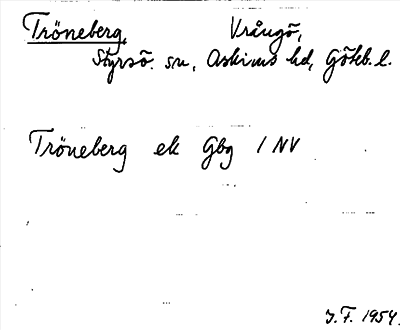 Tröneberg, Vrångö,
Styrsö. sn, Askims hd, Göteb. l.
Tröneberg ek Gbg 1 NV
J.F. 1954.